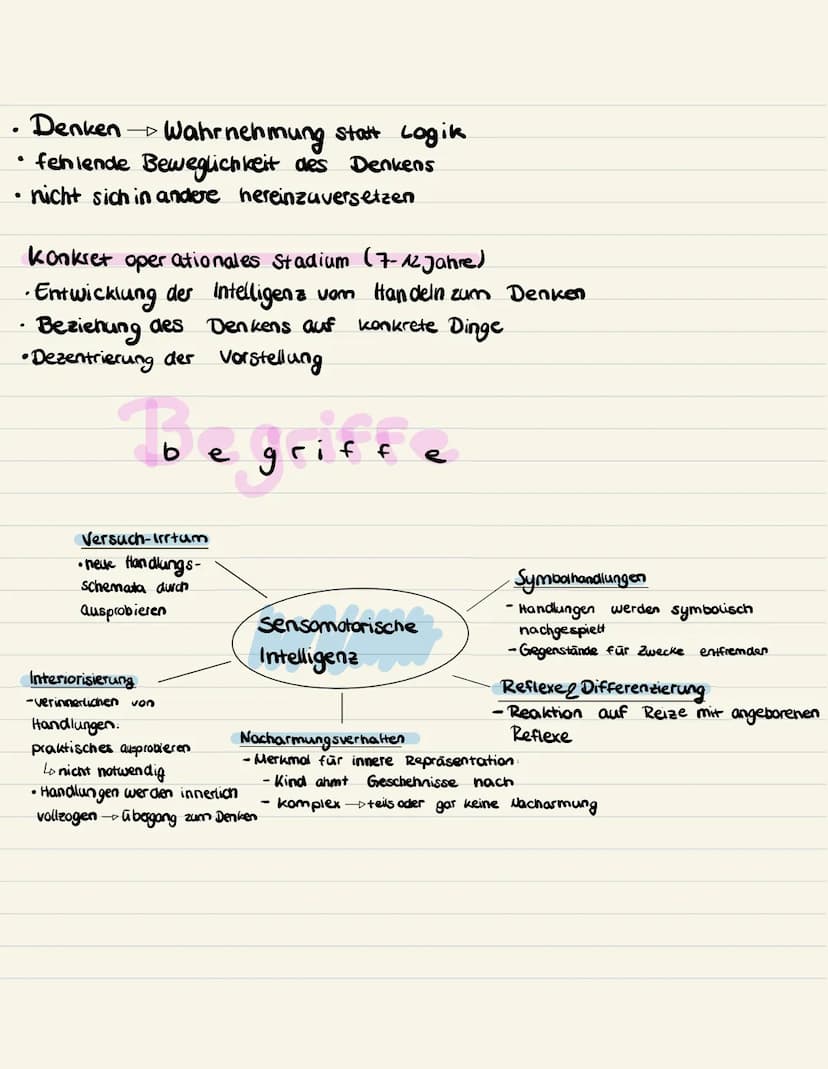 • Denken → Wahrnehmung statt Logik
• fehlende Beweglichkeit des Denkens
• nicht sich in andere hereinzuversetzen
Konkret operationales Stadium (7-12 Jahre)
• Entwicklung der Intelligenz vom Handeln zum Denken
• Beziehung des Denkens auf konkrete Dinge
• Dezentrierung der Vorstellung
Begriffe
begriffe
Versuch-Irrtum
• neue Handlungs-
schemata durch
Ausprobieren
Sensomotorische
Intelligenz
Symbolhandlungen
- Handlungen werden symbolisch
nachgespielt
- Gegenstände für Zwecke entfremden
Interiorisierung
- verinnerlichen von
Handlungen:
praktisches ausprobieren
↳ nicht notwendig
• Handlungen werden innerlich
vollzogen → Übergang zum Denken
Nacharmungsverhalten
- Merkmal für innere Repräsentation
- Kind ahmt Geschehnisse nach
- komplex → teils oder gar keine Nacharmung
Reflexe & Differenzierung
- Reaktion auf Reize mit angeborenen
Reflexe